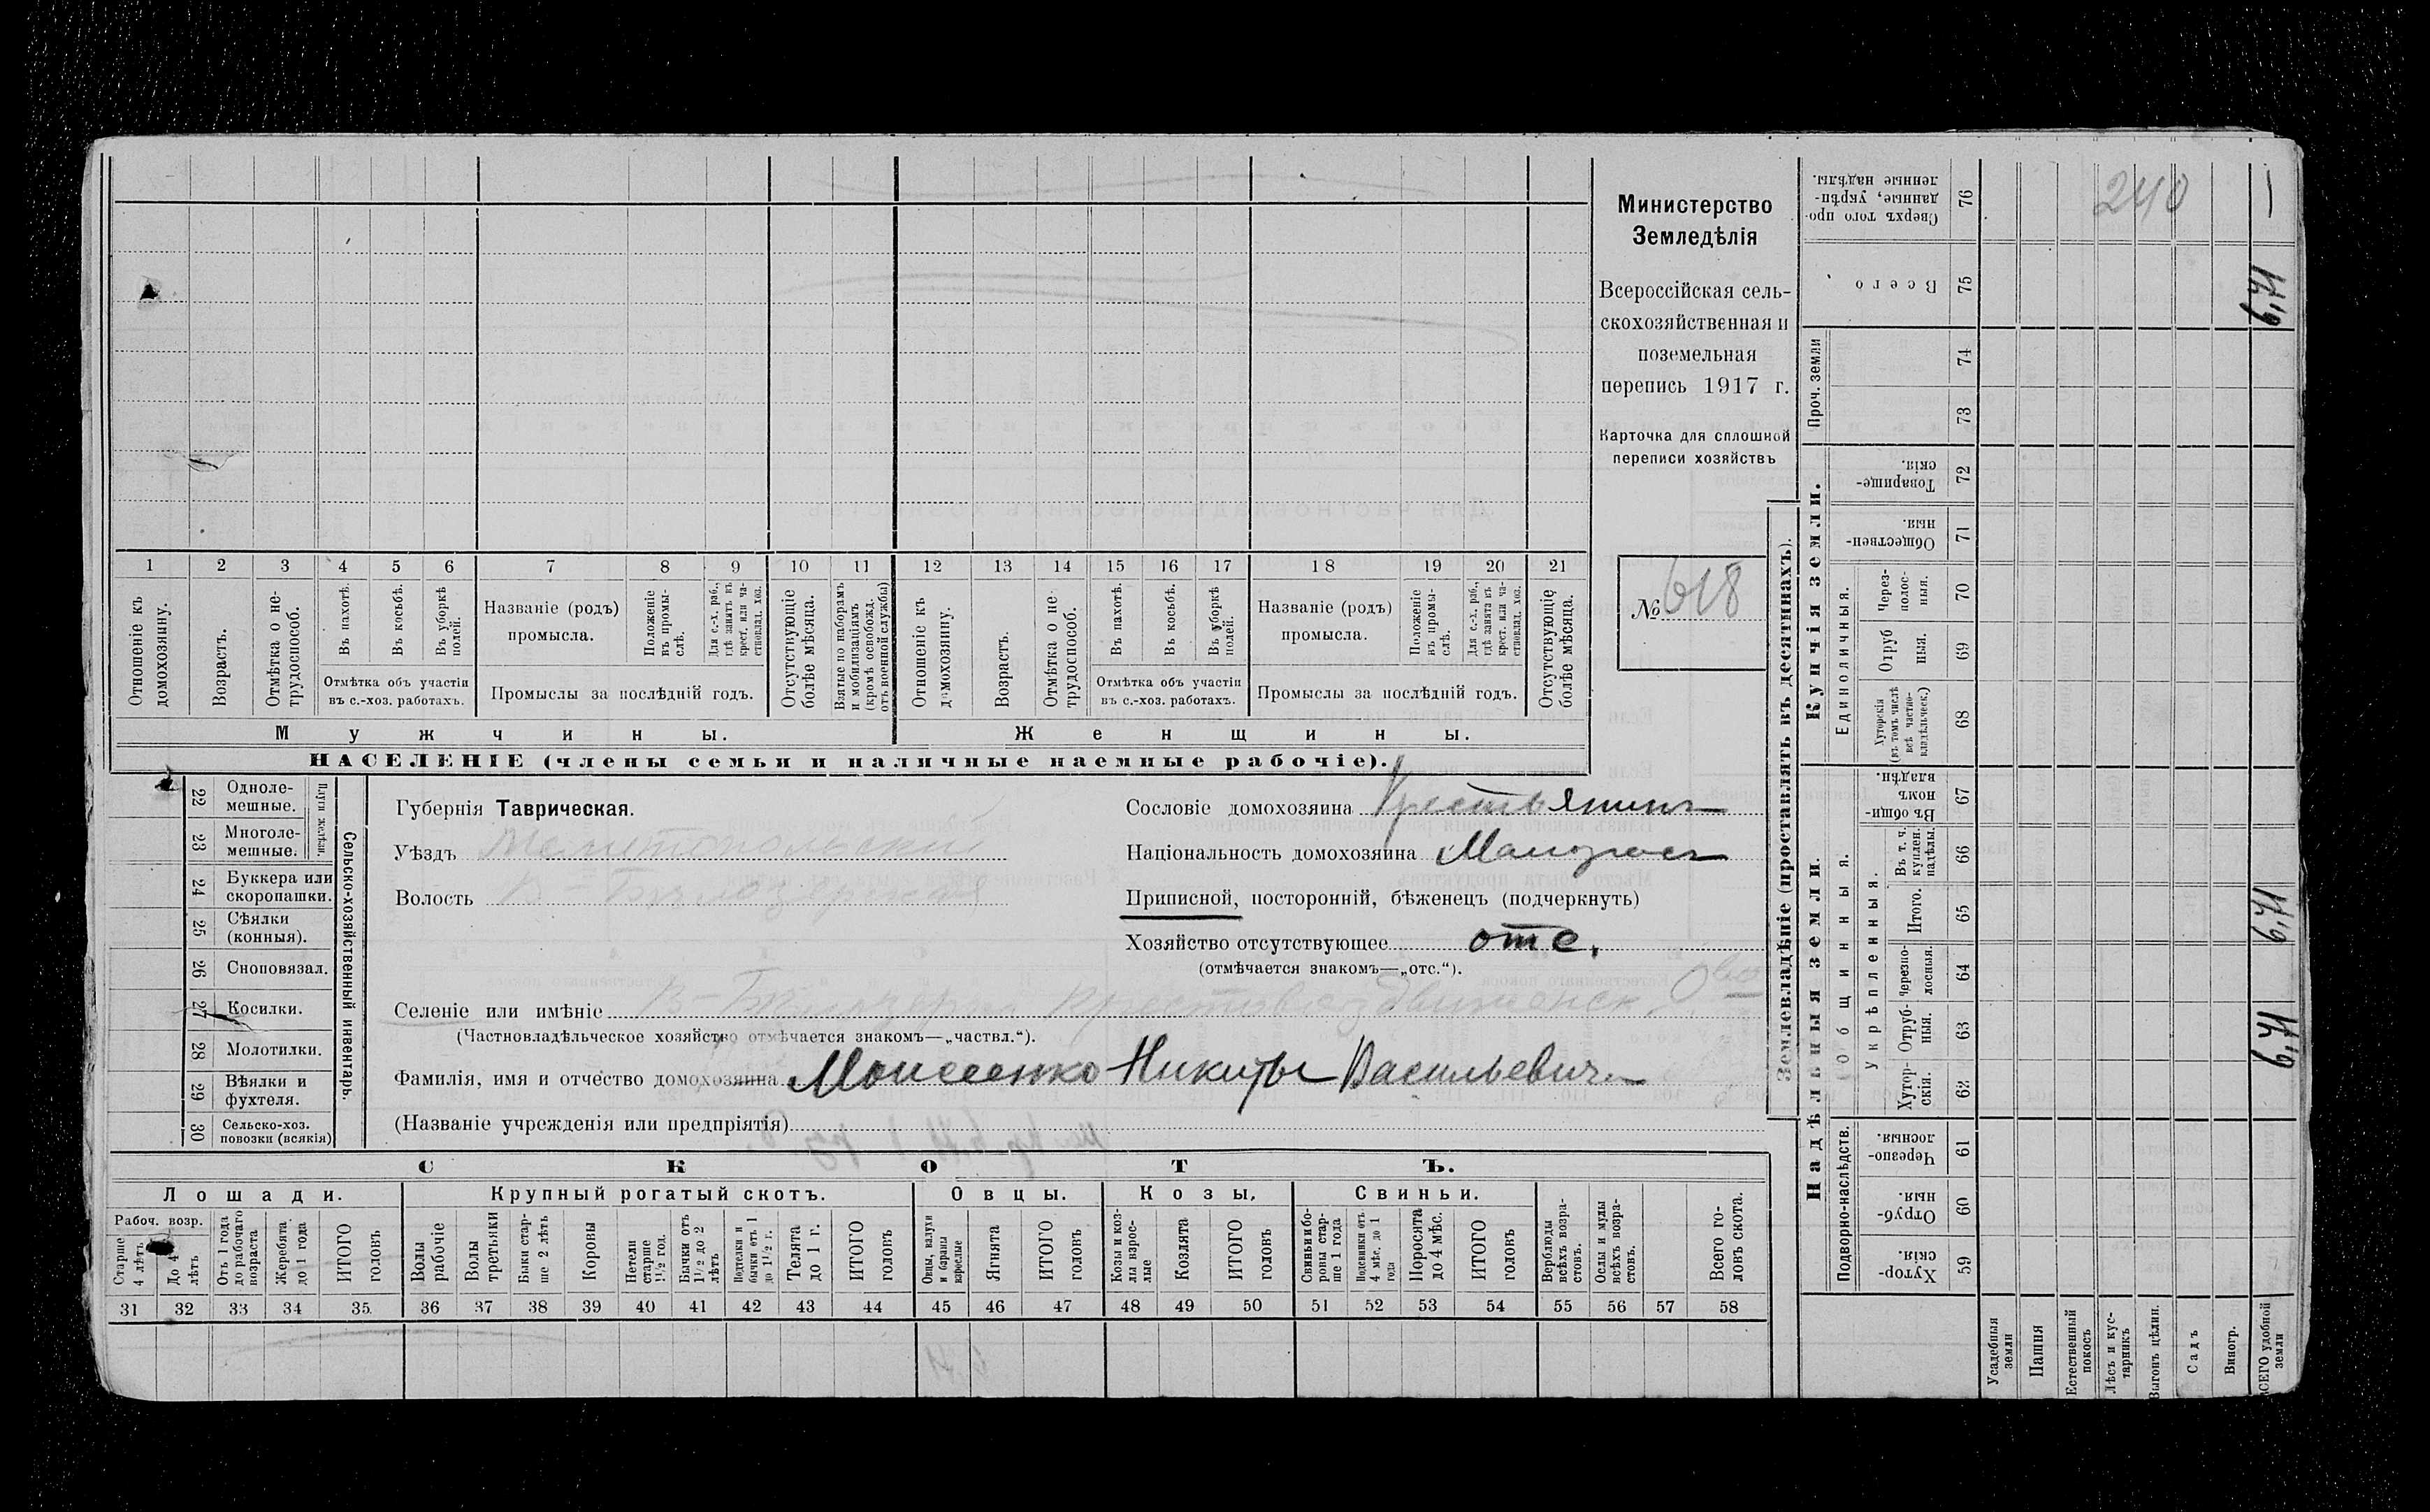 Министерство
Земледѣлія
Всероссійская сель-
скохозяйственная и
поземельная
перепись 1917 г.
Карточка для сплошной
переписи хозяйствъ
№ 618
1 2 3 4 5 6 7 8 9 10 11 12 13 14 15 16 17 18 19 20 21
Отношеніе къ домохозяину.
Возрастъ.
Отмѣтка о не-трудоспособ.
Въ пахотѣ.
Въ косьбѣ.
Въ уборкѣ полей.
Отмѣтка объ участіи
въ с.-хоз. работахъ.
Названіе (родъ)
промысла.
Положеніе въ промы-слѣ.
Для с.-х. раб., гдѣ занятъ въ крест. или ча-стновлад. хоз.
Промыслы за послѣдній годъ.
Отсутствующіе болѣе мѣсяца.
Взятые по наборамъ и мобилизаціямъ (кромѣ освобожд. отъ военной службы)
Отношеніе къ домохозяину.
Возрастъ.
Отмѣтка о не-трудоспособ.
Въ пахотѣ.
Въ косьбѣ.
Въ уборкѣ полей.
Отмѣтка объ участіи
въ с.-хоз. работахъ.
Названіе (родъ)
промысла.
Положеніе въ промы-слѣ.
Для с.-х. раб., гдѣ занята въ крест. или ча-стновлад. хоз.
Промыслы за послѣдній годъ.
Отсутствующіе болѣе мѣсяца.
Мужчины.
Женщины.
НАСЕЛЕНІЕ (члены семьи и наличные наемные рабочіе).
22 Одноле-мешные.
23 Многоле-мешные.
Плуги желѣзн.
24 Буккера или скоропашки.
25 Сѣялки (конныя).
26 Сноповязал.
27 Косилки.
28 Молотилки.
29 Вѣялки и фухтеля.
30 Сельско-хоз. повозки (всякія)
Сельско-хозяйственный инвентарь.
Губернія Таврическая.
Уѣздъ Мелитопольский
Волость В-Бѣлозерская
Сословіе домохозяина Крестьянинъ
Національность домохозяина Малоросъ
Приписной, посторонній, бѣженецъ (подчеркнуть)
Хозяйство отсутствующее отс.
(отмѣчается знакомъ—„отс.“).
Селеніе или имѣніе В-Бѣлозерка Крестовоздвиженск. О-во
(Частновладѣльческое хозяйство отмѣчается знакомъ—„частвл.“).
Фамилія, имя и отчество домохозяина Моисеенко Никиты Васильевич.
(Названіе учрежденія или предпріятія)
СКОТЪ.
Лошади. Крупный рогатый скотъ. Овцы. Козы. Свиньи.
Рабоч. возр.
Старше 4 лѣтъ
До 4 лѣтъ
Отъ 1 года до рабочаго возраста
Жеребята до 1 года
ИТОГО головъ
Волы рабочіе
Волы третьяки
Быки стар-ше 2 лѣтъ
Коровы
Нетели старше 1½ год.
Бычки отъ 1½ до 2 лѣтъ
Подтелки и бычки отъ 1 до 1½ г.
Телята до 1 г.
ИТОГО головъ
Овцы, валухи и бараны взрослые
Ягнята
ИТОГО головъ
Козы и коз-лы взрос-лые
Козлята
ИТОГО головъ
Свиньи и бо-ровы стар-ше 1 года
Подсвинки отъ 4 мѣс. до 1 года
Поросята до 4 мѣс.
ИТОГО головъ
Верблюды всѣхъ возра-стовъ.
Ослы и мулы всѣхъ возра-стовъ.
Всего го-ловъ скота.
31 32 33 34 35 36 37 38 39 40 41 42 43 44 45 46 47 48 49 50 51 52 53 54 55 56 57 58
Землевладѣніе (проставлять въ десятинахъ).
Надѣльныя земли.
Купчія земли.
Проч. земли
Подворно-наслѣдств.
Общинныя.
Укрѣпленныя.
Единоличныя.
Хутор-скія. 59
Отруб-ныя. 60
Черезпо-лосныя. 61
Хутор-скія. 62
Отруб-ныя. 63
Черезпо-лосныя. 64
Итого. 65
Въ т. ч. куплен. надѣлы. 66
Въ общи-номъ владѣн. 67
Хуторскія (въ томъ числѣ всѣ частно-владѣльческ.) 68
Отруб ныя. 69
Через-полос-ныя. 70
Обществен-ныя. 71
Товарище-скія. 72
73
74
Всего 75
Сверхъ того про-данные, укрѣп-ленные надѣлы. 76
Усадебныя земли
Пашня
Естественный покосъ
Лѣсъ и кус-тарникъ
Выгонъ цѣлин.
Садъ
Виногр.
ВСЕГО удобной земли
240
—
6,71
6,71
6,71